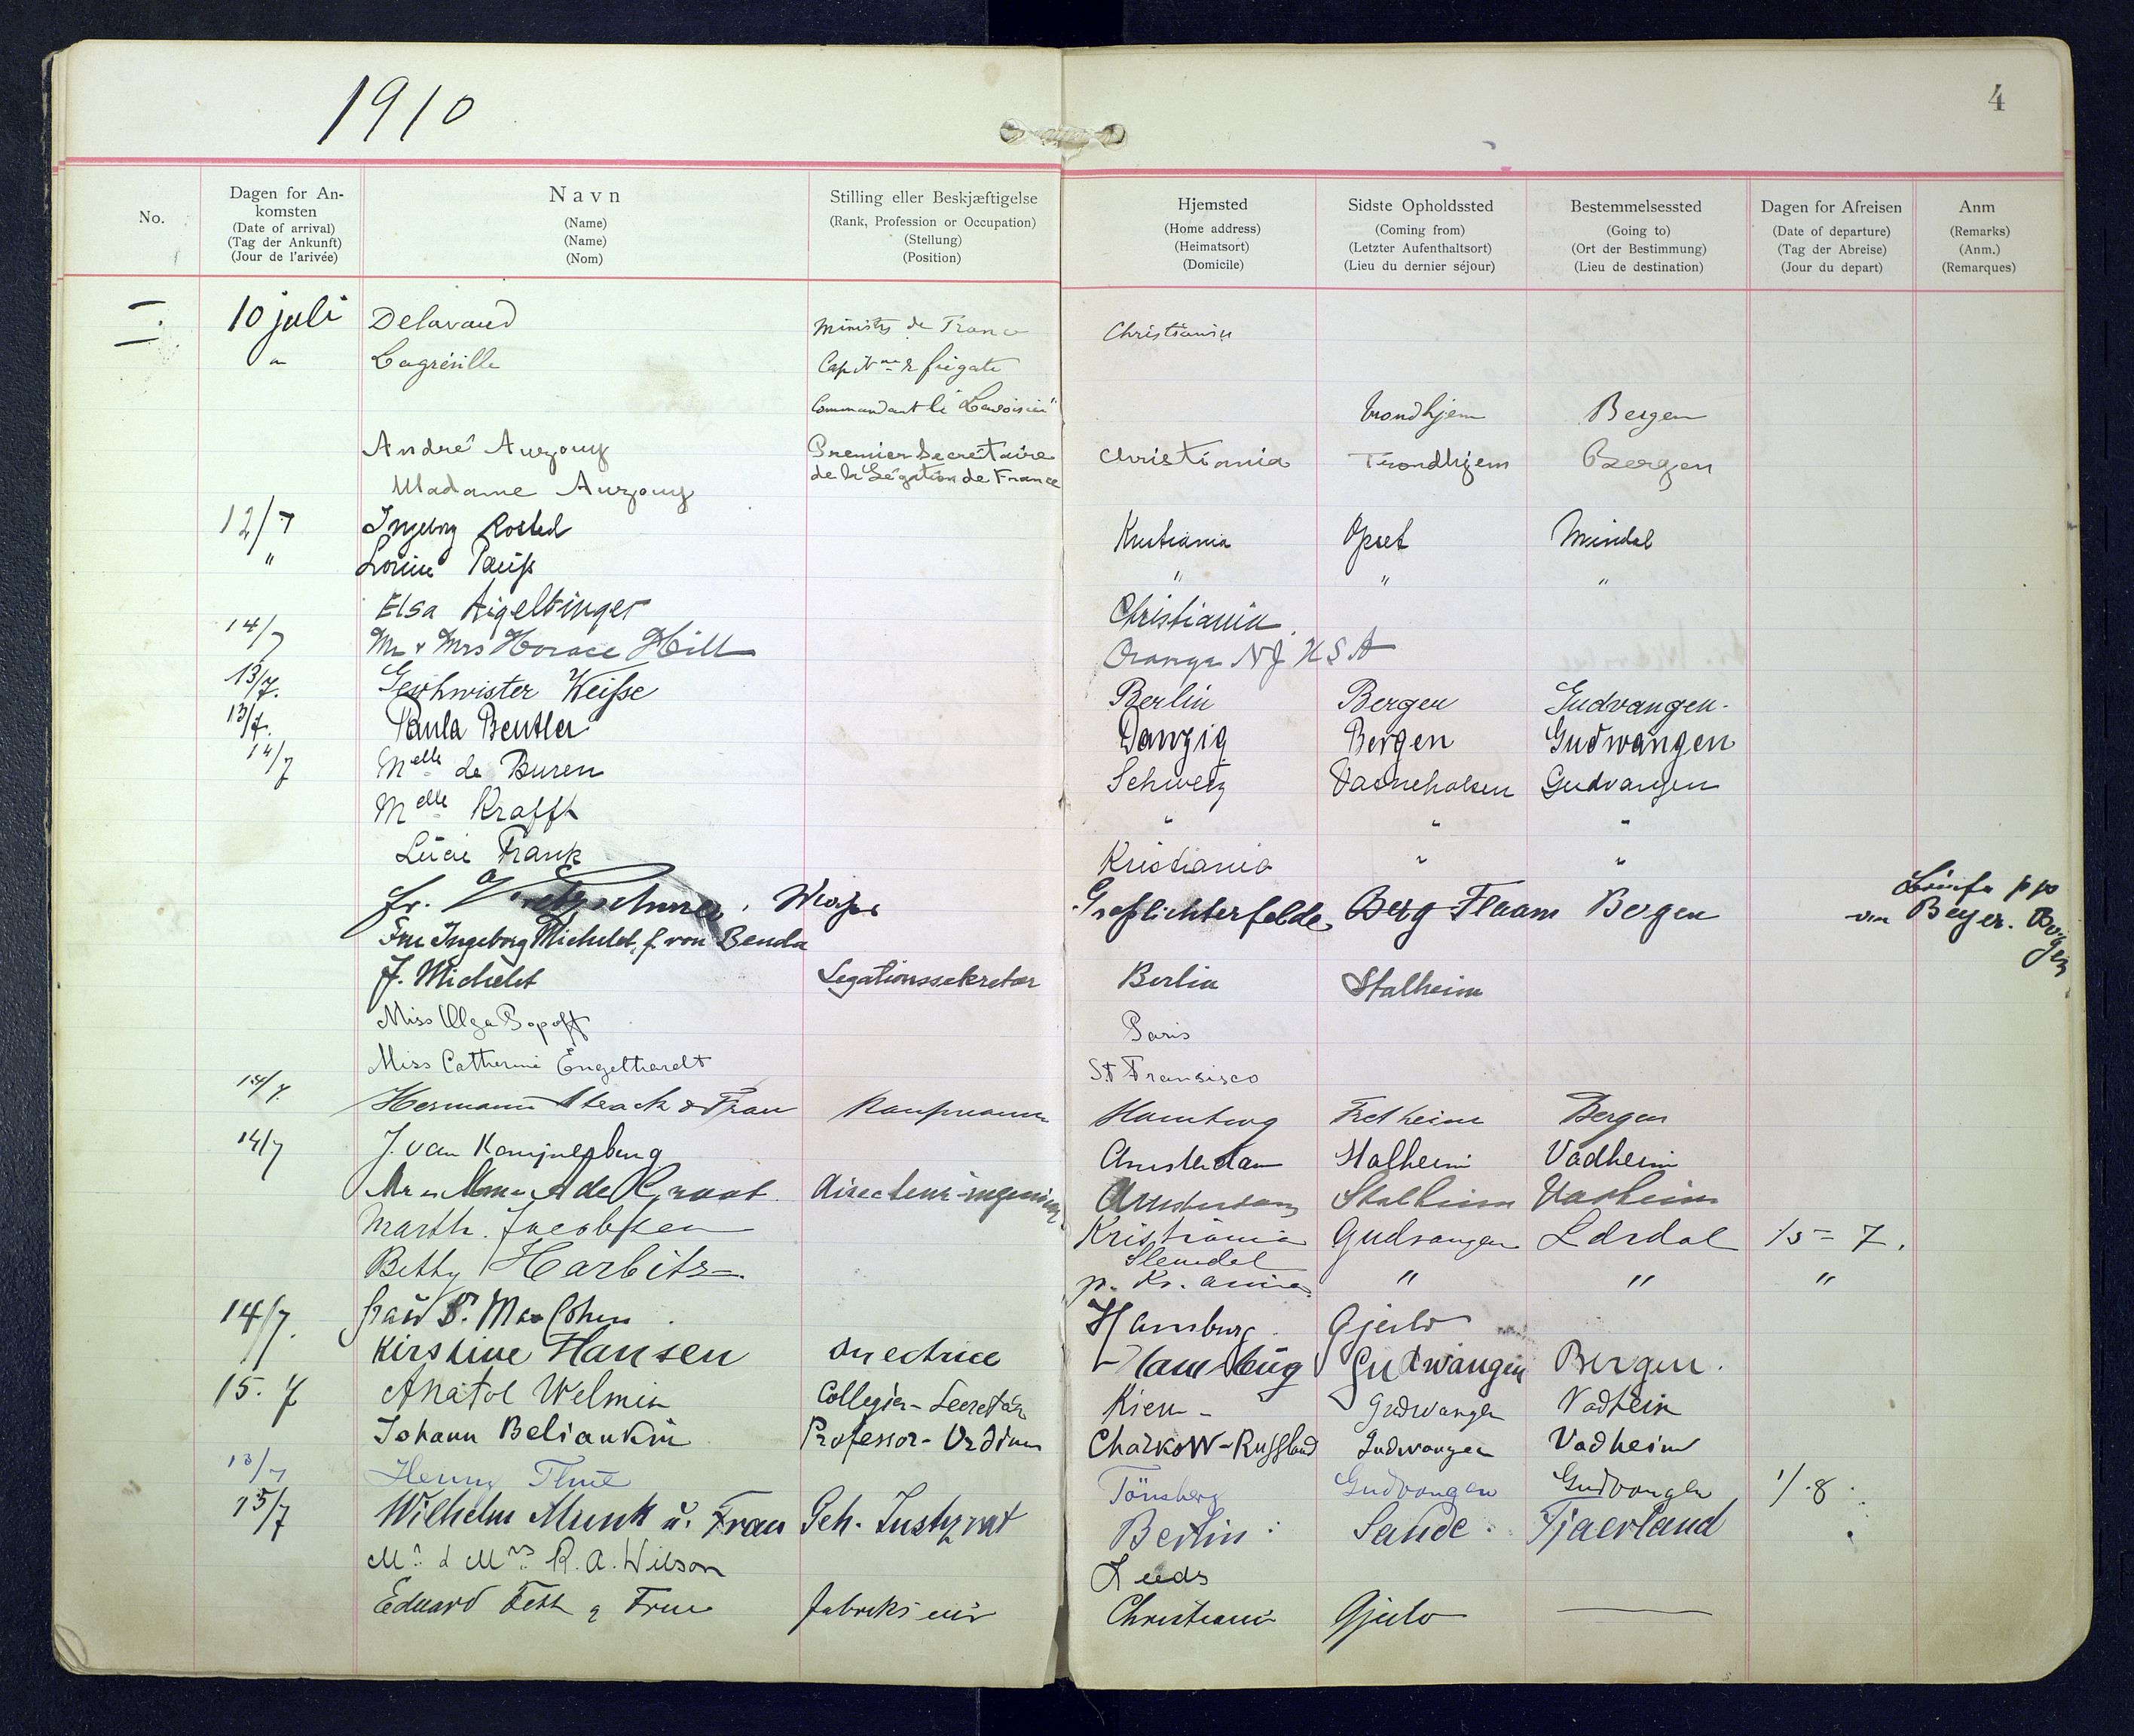 1910
4
No.
Dagen for An-
komsten
(Date of arrival)
(Tag der Ankunft)
(Jour de l'arivée)
Navn
(Name)
(Name)
(Nom)
Stilling eller Beskjæftigelse
(Rank, Profession or Occupation)
(Stellung)
(Position)
Hjemsted
(Home address)
(Heimatsort)
(Domicile)
Sidste Opholdssted
(Coming from)
(Letzter Aufenthaltsort)
(Lieu du dernier séjour)
Bestemmelsessted
(Going to)
(Ort der Bestimmung)
(Lieu de destination)
Dagen for Afreisen
(Date of departure)
(Tag der Abreise)
(Jour du depart)
Anm
(Remarks)
(Anm.)
(Remarques)
10 juli Delavaud Ministre de France Christiania
" Lagrésille Cap Nne de frégate
Commandant le Trondhjem Bergen
André Premier Secrétaire Christiania Trondhjem Bergen
Madame de la Légation de France
12/7 Ingeborg Rosted Kristiania Opset
" " " "
Elsa Aigeltinger Christiania
14/7 Mr & Mrs Horace Hill Orange NJ USA
13/7. Geschwister Weisse Berlin Bergen Gudvangen.
13/7. Paula Beutler Danzig Bergen Gudwangen
14/7 Melle de Buren Schweiz Gudvangen
Melle Krafft " " "
Lucie Frank Kristiania " "
Fr. Grosslichterfelde Berg Flaam Bergen
von Beyer. Bergen
Frue Ingeborg Michelet, f. von Benda
J. Michelet Legationssekretær Berlin Stalheim
Miss Olga Popoff Paris
Miss Catherine Engelhardt St Fransisco
14/7. Hermann Strack & Frau Kaufmann Hamburg Fretheim Bergen
14/7 J. van Amsterdam Stalheim Vadheim
de Graaf. directeur-ingenieur Amsterdam Stalheim Vadheim
Marth. Jacobsen Kristiania Gudvangen Lærdal 15-7.
Betty Harbitz. " " "
14/7. Frau S. Max Cohen. Hamburg.
Kirstine Hansen Directrice Hamburg Gudwangen Bergen.
15.7 Anatol Welmin Collegien-Secretär Kiew- Gudwangen Vadheim
Johann Beliankin Professor- Charkow-Russland Gudwangen Vadheim
13/7 Henny Tönsberg Gudvangen Gudvangen 1/8
15/7 Wilhelm Munk u. Frau Geh. Justizrat Berlin Sande. Fjaerland
Mr. & Mrs. R. A. Wilson Leeds
Eduard & Frue Christiania